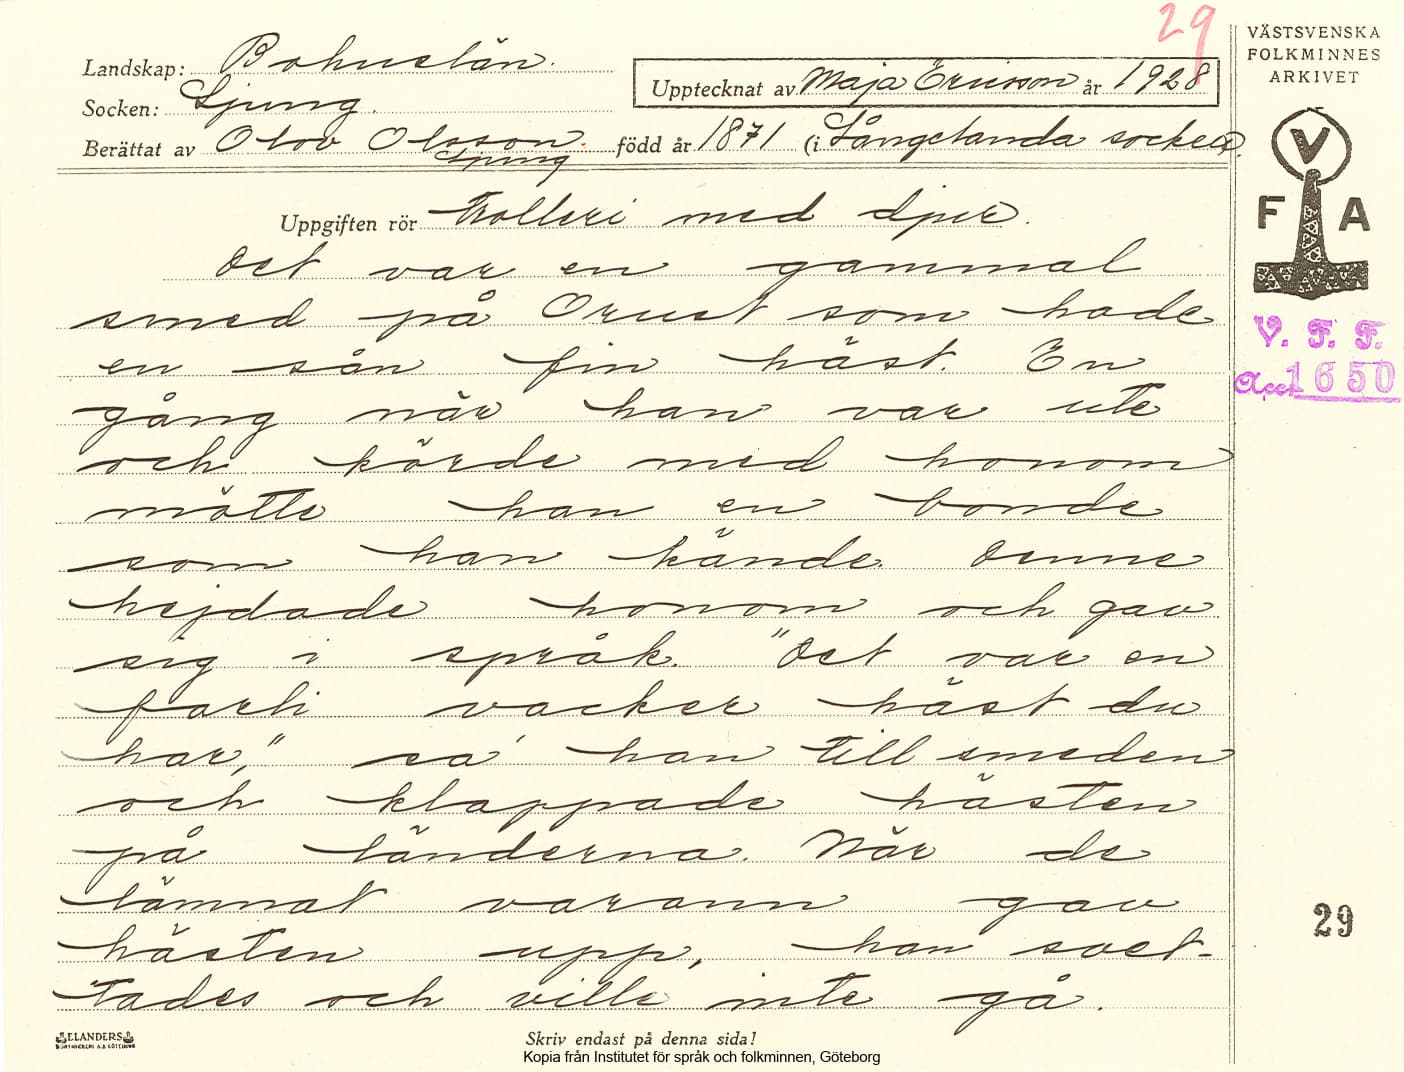 29
VÄSTSVENSKA
FOLKMINNES
ARKIVET
Landskap: Bohuslän.
Upptecknat av Maja Ericsson år 1928
Socken: Ljung.
Berättat av Olov Olsson. född år 1871 (i Långelanda socken.
Ljung
V
F A
Uppgiften rör Trolleri med djur.
Det var en gammal
smed på Orust som hade
en sån fin häst. En
gång när han var ute
och körde med honom
mötte han en bonde
som han kände. Denne
hejdade honom och gav
sig i språk. "Det var en
farli vacker häst du
har," sa' han till smeden
och klappade hästen
på länderna. När de
lämnat varann gav
hästen upp, han svet-
tades och ville inte gå.
V. F. F.
Acc 1650
29
ELANDERS
Skriv endast på denna sida!
Kopia från Institutet för språk och folkminnen, Göteborg